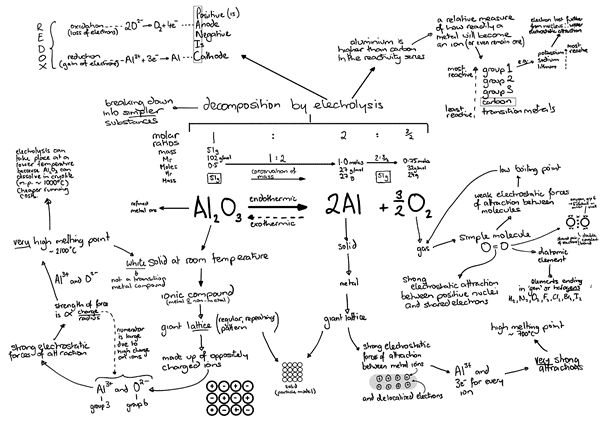 REDOX
oxidation
(loss of electrons)
2O²⁻ → O₂ + 4e⁻
reduction
(gain of electrons)
Al³⁺ + 3e⁻ → Al
Positive (is)
Anode
Negative
Is
Cathode
aluminium is
higher than carbon
in the reactivity series
a relative measure
of how readily a
metal will become
an ion (or even remain one)
most
reactive
group 1
group 2
group 3
carbon
transition metals
least
reactive
e.g.
potassium
sodium
lithium
most
reactive
electron lost further
from nucleus
breaking down
into simpler
substances
decomposition by electrolysis
molar
ratios
1 : 2 : 3/2
mass
Mr
Moles
Mr
Mass
51g
102 g/mol
0.5
51g
1:2
conservation of
mass
1.0 mols
27 g/mol
27g
51g
0.75 mols
32 g/mol
24g
refined
metal ore
Al₂O₃
endothermic
exothermic
2Al + 3/2 O₂
electrolysis can
take place at a
lower temperature
because Al₂O₃ can
dissolve in cryolite
(m.p. ~ 1000°C)
Cheaper running
costs
very high melting point
~ 2100°C
Al³⁺ and O²⁻
strength of force
is α charge
radius
numerator
is large
due to
high charge
on ions
strong electrostatic
forces of attraction
Al³⁺ and O²⁻
group 3
group 6
White solid at room temperature
not a transition
metal compound
ionic compound
(metal & non metal)
giant lattice
(regular, repeating
pattern)
made up of oppositely
charged ions
solid
(particle model)
solid
metal
giant lattice
strong electrostatic
forces of attraction
between metal ions
and delocalized electrons
Al³⁺ and
3e⁻ for every
ion
very strong
attractions
high melting point
~ 700°C
gas
low boiling point
weak electrostatic forces
of attraction between
molecules
simple molecule
O=O
strong
electrostatic attraction
between positive nuclei
and shared electrons
diatomic
element
elements ending
in 'gen' or halogens
H₂, N₂, O₂, F₂, Cl₂, Br₂, I₂